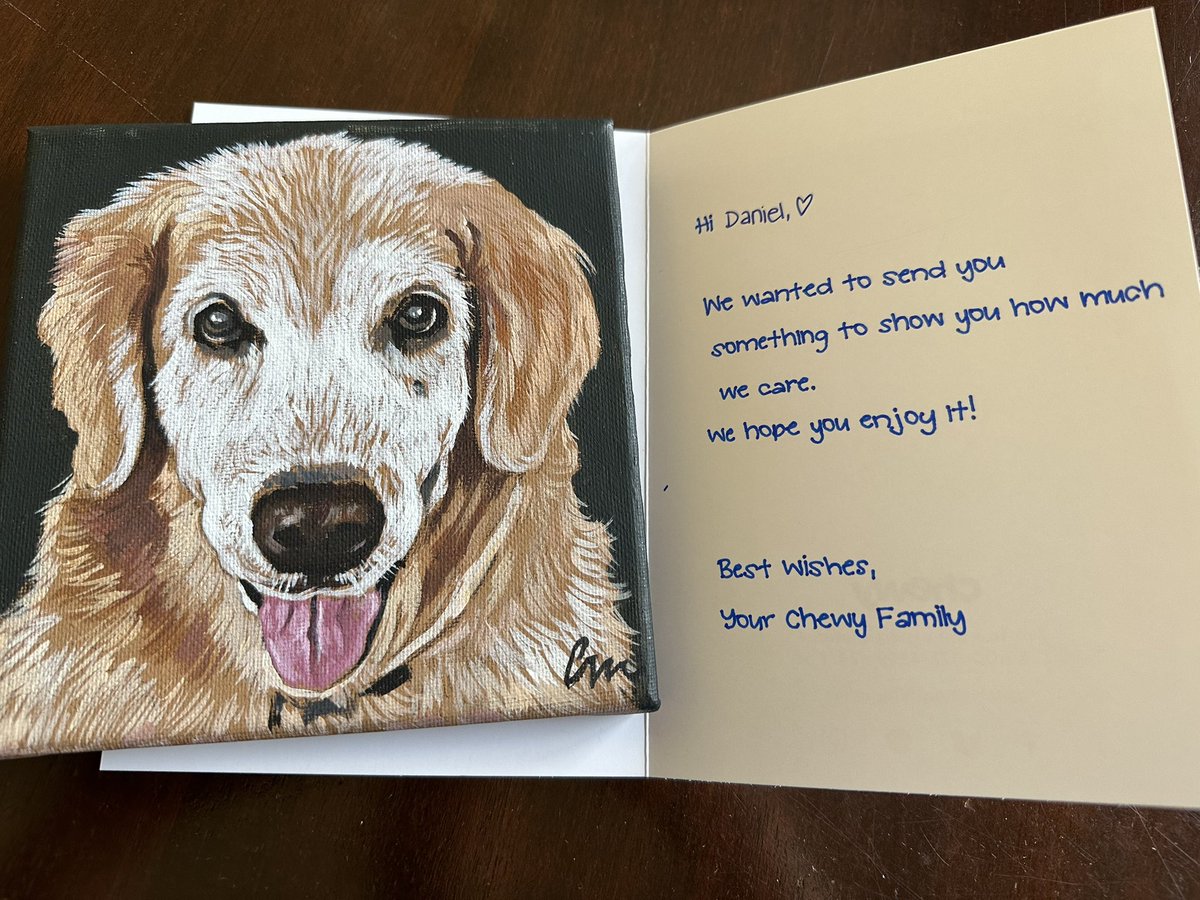 Hi Daniel, ♡
We wanted to send you
something to show you how much
we care.
We hope you enjoy it!
Best wishes,
Your Chewy Family